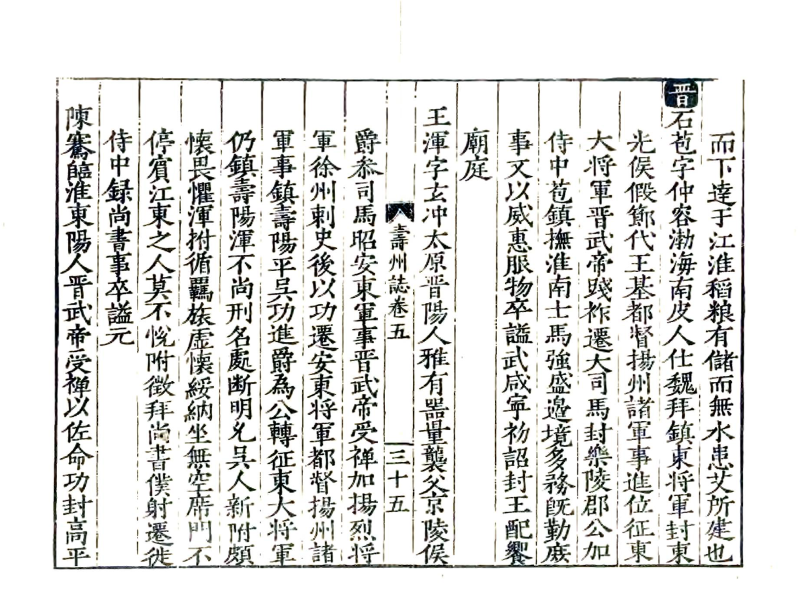 而下達于江淮稻粮有儲而無水患艾所建也
晋
石苞字仲容渤海南皮人仕魏拜鎮東將軍封東
光侯假節代王基都督揚州諸軍事進位征東
大將軍晋武帝踐祚遷大司馬封樂陵郡公加
侍中苞鎮撫淮南士馬強盛邉境多務旣勤庶
事又以威惠服物卒謚武咸寧初詔封王配饗
廟庭
王渾字玄冲太原晋陽人雅有器量襲父京陵侯
壽州誌卷五
三十五
爵叅司馬昭安東軍事晋武帝受禅加揚烈將
軍徐州刺史後以功遷安東将軍都督揚州諸
軍事鎮壽陽平吳功進爵為公轉征東大将軍
仍鎮壽陽渾不尚刑名處断明允吳人新附頗
懷畏懼渾拊循羈旅虚懷綏納坐無空席門不
停賓江東之人莫不悅附徵拜尚書僕射遷徙
侍中録尚書事卒謚元
陳騫臨淮東陽人晋武帝受禅以佐命功封高平